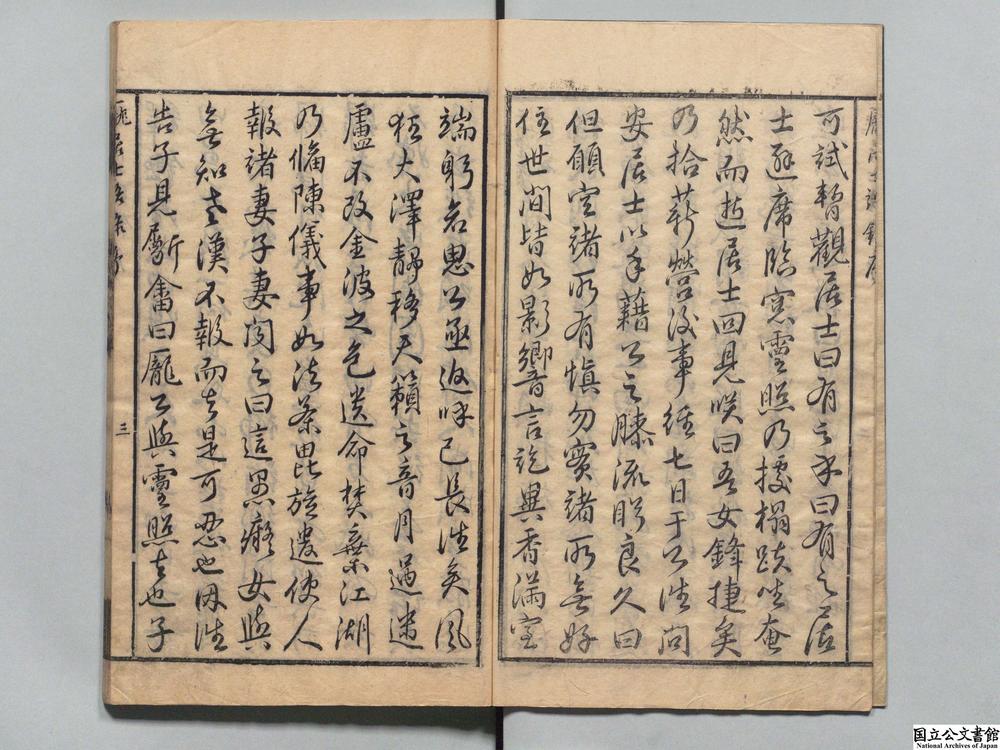 可試暫觀居士曰有之乎曰有之居
士避席臨窓靈照乃據榻趺坐奄
然而逝居士回見咲曰吾女鋒捷矣
乃拾薪營後事經七日于公往問
安居士以手藉公之膝流眄良久曰
但願空諸所有慎勿實諸所無好
住世間皆如影響言訖異香滿室
端躬若思公亟返呼已長往矣風
狂大澤靜移天籟之音月過迷
盧不改金波之色遺命焚棄江湖
乃備陳儀事如法荼毘旋遣使人
報諸妻子妻聞之曰這愚癡女與
無知老漢不報而去是可忍也因往
告子見斸畬曰龐公與靈照去也子
龐居士語錄序
三
国立公文書館
National Archives of Japan